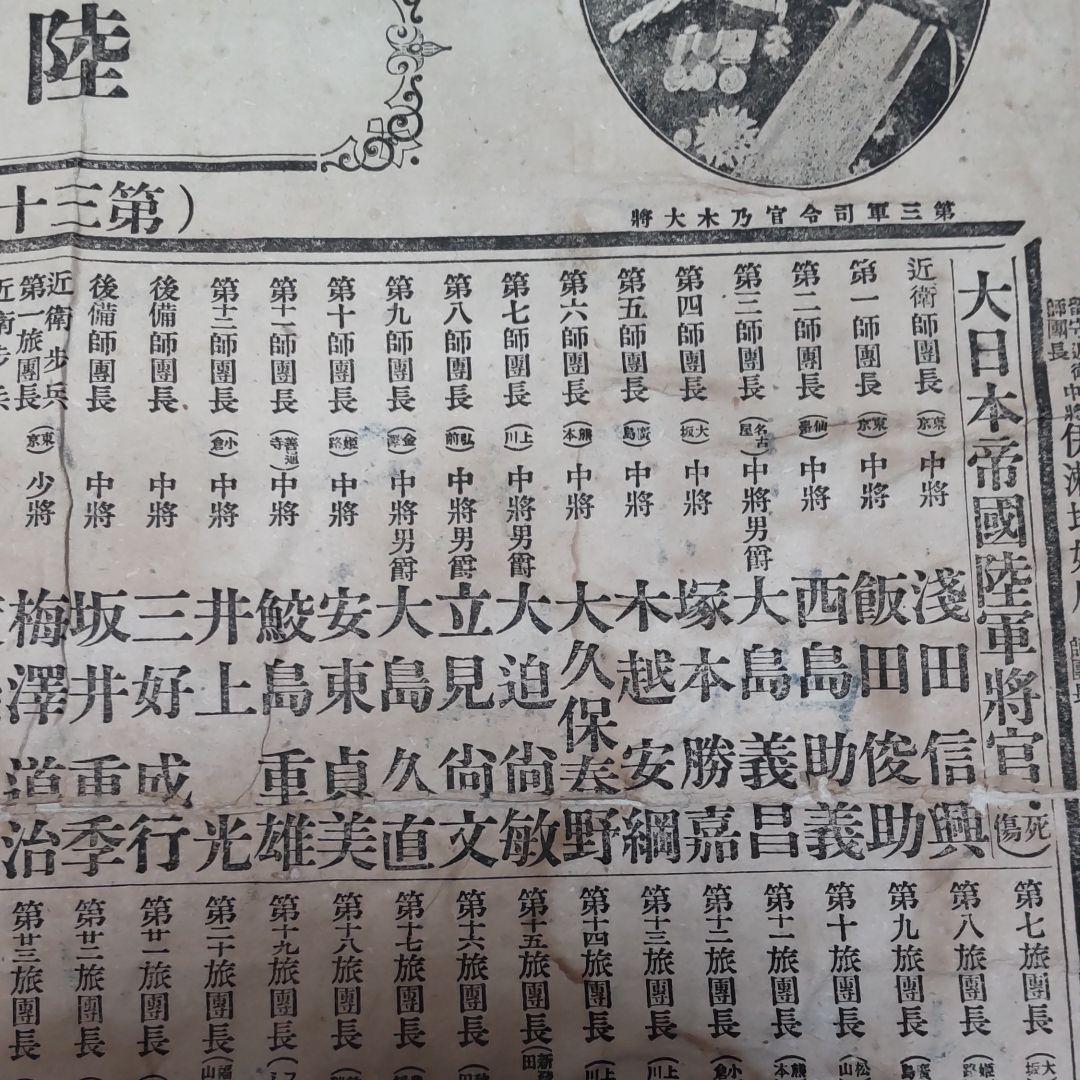 陸
第三軍司令官乃木大將
(第三十
大日本帝國陸軍將官・(死傷)
近衛師團長(東京)中將 淺田信興
第一師團長(東京)中將 飯田俊助
第二師團長(仙臺)中將 西島助義
第三師團長(名古屋)中將男爵 大島義昌
第四師團長(大坂)中將 塚本勝嘉
第五師團長(廣島)中將 木越安綱
第六師團長(熊本)中將 大久保春野
第七師團長(上川)中將男爵 大迫尙敏
第八師團長(弘前)中將男爵 立見尙文
第九師團長(金澤)中將男爵 大島久直
第十師團長(姫路)中將 安東貞美
第十一師團長(善通寺)中將 鮫島重雄
第十二師團長(小倉)中將 井上光
後備師團長 中將 三好成行
後備師團長 中將 坂井重季
近衛步兵第一旅團長(東京)少將 梅澤道治
近衛步兵
第七旅團長(大坂
第八旅團長(姫路
第九旅團長(廣島
第十旅團長(松山
第十一旅團長(熊本
第十二旅團長(小倉
第十三旅團長(上川
第十四旅團長(上川
第十五旅團長(新發田
第十六旅團長
第十七旅團長
第十八旅團長
第十九旅團長
第二十旅團長(福
第廿一旅團長
第廿二旅團長
第廿三旅團長
師團長